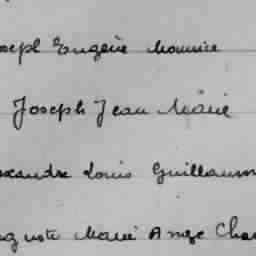 oseph Eugène Maurice
Joseph Jean Marie
exandre Louis Guillaum
uguste Marie Ange Cha